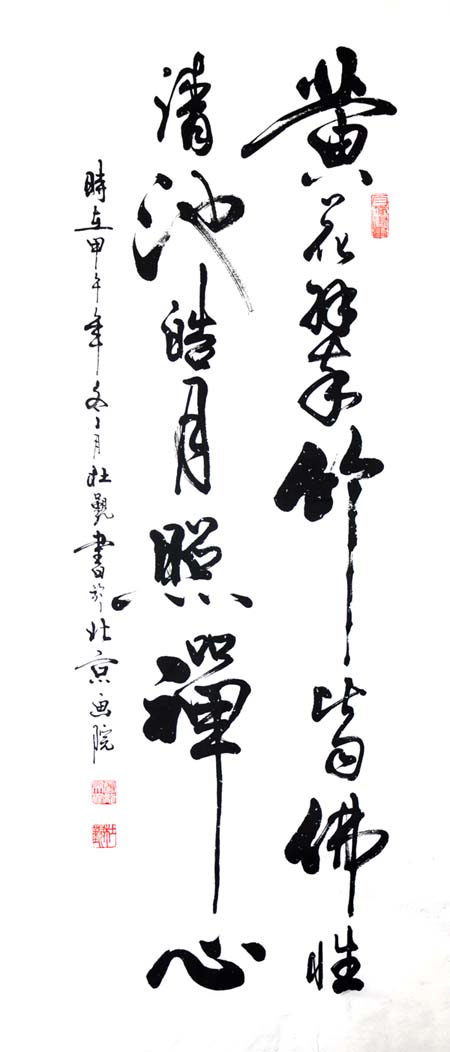 黄花翠竹皆佛性
清池皓月照禪心
時在甲午年冬月杜書於北京画院